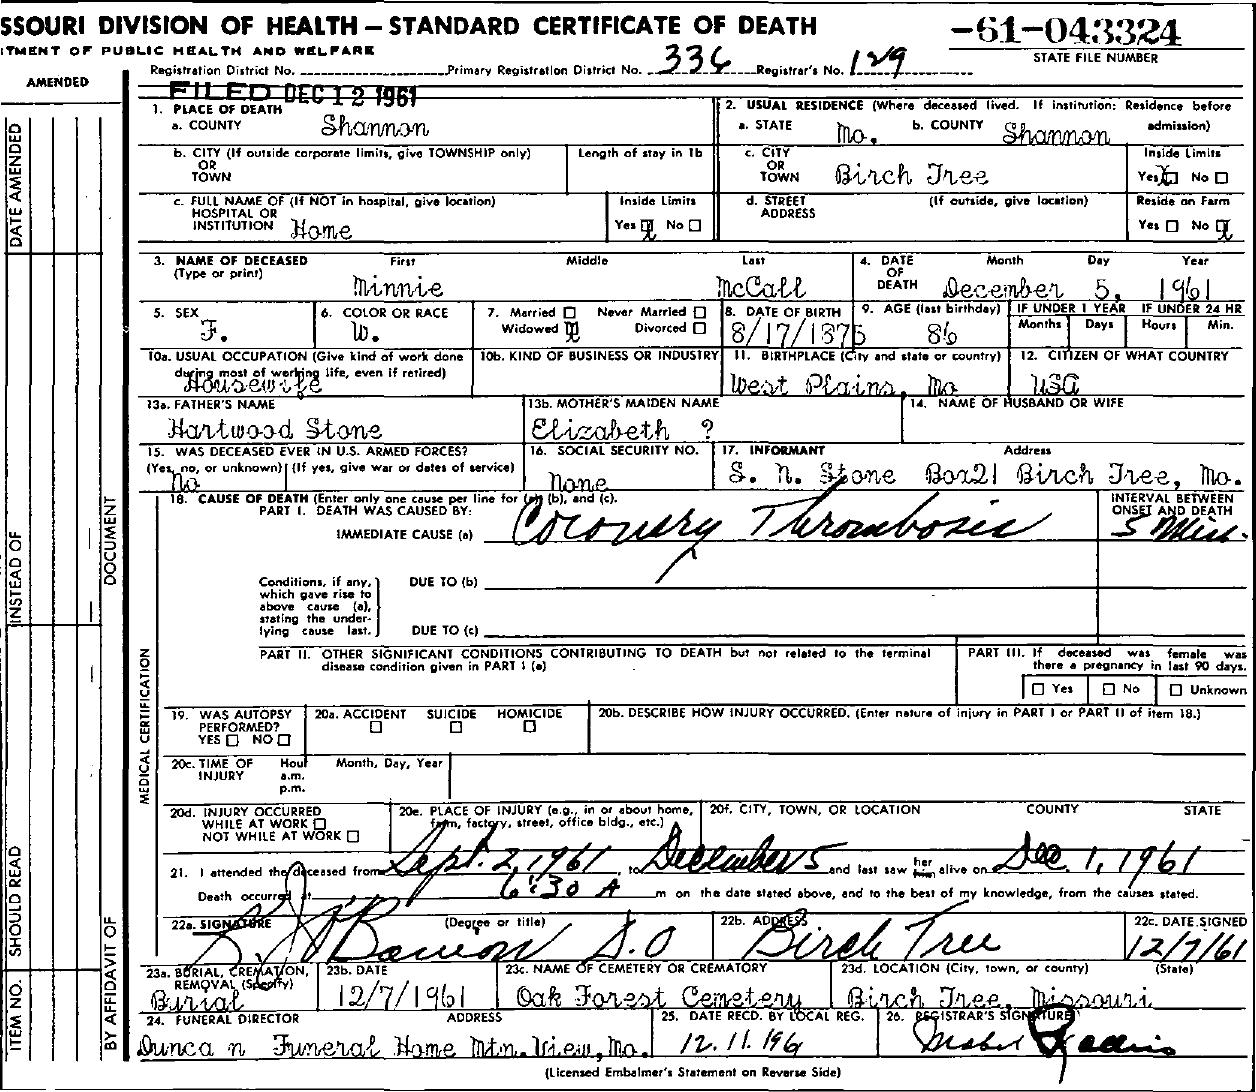 SSOURI DIVISION OF HEALTH — STANDARD CERTIFICATE OF DEATH
-61-043324
TMENT OF PUBLIC HEALTH AND WELFARE
STATE FILE NUMBER
Registration District No. Primary Registration District No. 336 Registrar's No. 129
AMENDED
FILED DEC 12 1961
1. PLACE OF DEATH
a. COUNTY Shannon
2. USUAL RESIDENCE (Where deceased lived. If institution: Residence before admission)
a. STATE Mo. b. COUNTY Shannon
b. CITY (If outside corporate limits, give TOWNSHIP only) OR TOWN
Length of stay in 1b
c. CITY OR TOWN Birch Tree
Inside Limits
Yes No
c. FULL NAME OF (If NOT in hospital, give location) HOSPITAL OR INSTITUTION Home
Inside Limits
Yes X No
d. STREET ADDRESS (If outside, give location)
Reside on Farm
Yes No X
3. NAME OF DECEASED (Type or print)
First Middle Last
Minnie McCall
4. DATE OF DEATH
Month Day Year
December 5, 1961
5. SEX
F.
6. COLOR OR RACE
W.
7. Married Never Married
Widowed X Divorced
8. DATE OF BIRTH
8/17/1875
9. AGE (last birthday)
86
IF UNDER 1 YEAR
Months Days
IF UNDER 24 HR
Hours Min.
10a. USUAL OCCUPATION (Give kind of work done during most of working life, even if retired)
Housewife
10b. KIND OF BUSINESS OR INDUSTRY
11. BIRTHPLACE (City and state or country)
West Plains, Mo
12. CITIZEN OF WHAT COUNTRY
USA
13a. FATHER'S NAME
Hartwood Stone
13b. MOTHER'S MAIDEN NAME
Elizabeth ?
14. NAME OF HUSBAND OR WIFE
15. WAS DECEASED EVER IN U.S. ARMED FORCES?
(Yes, no, or unknown) (If yes, give war or dates of service)
No
16. SOCIAL SECURITY NO.
None
17. INFORMANT Address
S. N. Stone Box21 Birch Tree, Mo.
18. CAUSE OF DEATH (Enter only one cause per line for (a), (b), and (c).
PART I. DEATH WAS CAUSED BY:
IMMEDIATE CAUSE (a) Coronary Thrombosis
INTERVAL BETWEEN ONSET AND DEATH
5 Min.
Conditions, if any, which gave rise to above cause (a), stating the underlying cause last.
DUE TO (b)
DUE TO (c)
PART II. OTHER SIGNIFICANT CONDITIONS CONTRIBUTING TO DEATH but not related to the terminal disease condition given in PART I (a)
PART III. If deceased was female was there a pregnancy in last 90 days.
Yes No Unknown
19. WAS AUTOPSY PERFORMED?
YES NO
20a. ACCIDENT SUICIDE HOMICIDE
20b. DESCRIBE HOW INJURY OCCURRED. (Enter nature of injury in PART I or PART II of item 18.)
20c. TIME OF INJURY
Hour Month, Day, Year
a.m.
p.m.
20d. INJURY OCCURRED
WHILE AT WORK
NOT WHILE AT WORK
20e. PLACE OF INJURY (e.g., in or about home, farm, factory, street, office bldg., etc.)
20f. CITY, TOWN, OR LOCATION COUNTY STATE
21. I attended the deceased from Sept. 2, 1961 to December 5 and last saw her him alive on Dec 1, 1961
Death occurred at 6:30 A m on the date stated above, and to the best of my knowledge, from the causes stated.
22a. SIGNATURE (Degree or title)
D.O
22b. ADDRESS
Birch Tree
22c. DATE SIGNED
12/7/61
23a. BURIAL, CREMATION, REMOVAL (Specify)
Burial
23b. DATE
12/7/1961
23c. NAME OF CEMETERY OR CREMATORY
Oak Forest Cemetery
23d. LOCATION (City, town, or county) (State)
Birch Tree, Missouri
24. FUNERAL DIRECTOR ADDRESS
Duncan Funeral Home Mtn. View, Mo.
25. DATE RECD. BY LOCAL REG.
12.11.1961
26. REGISTRAR'S SIGNATURE
Mabel
(Licensed Embalmer's Statement on Reverse Side)
DATE AMENDED
INSTEAD OF
DOCUMENT
MEDICAL CERTIFICATION
SHOULD READ
ITEM NO.
BY AFFIDAVIT OF